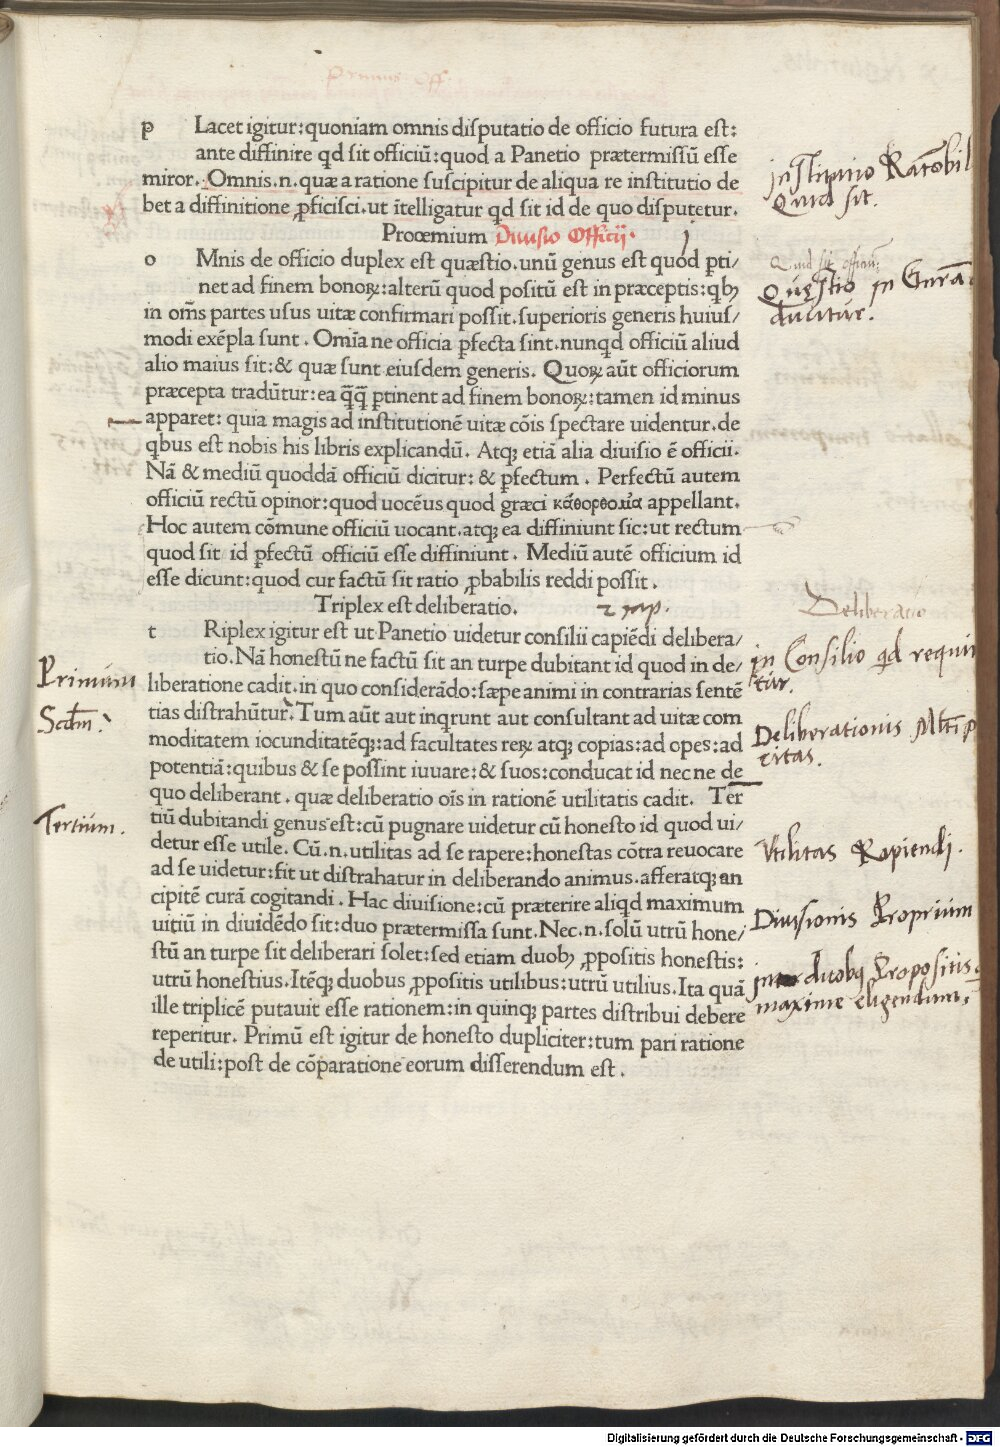 Primus Off.
p Lacet igitur:quoniam omnis disputatio de officio futura est:
ante diffinire qd sit officiū:quod a Panetio prætermissū esse
miror. Omnis.n.quæ a ratione suscipitur de aliqua re institutio de
bet a diffinitione ꝓficisci.ut ītelligatur qd sit id de quo disputetur.
institutio Ratōbil
Quid sit.
Prooemium Diuisio Officij.
o Mnis de officio duplex est quæstio.unū genus est quod ꝑti/
net ad finem bonoꝝ:alterū quod positū est in præceptis:qbꝫ
in om̄s partes usus uitæ confirmari possit.superioris generis huius/
modi exēpla sunt. Omīa ne officia ꝑfecta sint.nunqd officiū aliud
alio maius sit:& quæ sunt eiusdem generis. Quoꝝ aūt officiorum
præcepta tradūtur:ea q̄q̄ ꝑtinent ad finem bonoꝝ:tamen id minus
apparet: quia magis ad institutionē uitæ cōis spectare uidentur.de
qbus est nobis his libris explicandū. Atqꝫ etiā alia diuisio ē officii.
Nā & mediū quoddā officiū dicitur: & ꝑfectum. Perfectū autem
officiū rectū opinor:quod uocēus quod græci κάθορθομα appellant.
Hoc autem cōmune officiū uocant.atqꝫ ea diffiniunt sic:ut rectum
quod sit id ꝑfectū officiū esse diffiniunt. Mediū autē officium id
esse dicunt:quod cur factū sit ratio ꝓbabilis reddi possit.
Quid sit officium
Quęstio in
ducitur.
Triplex est deliberatio. 2 cap.
t Riplex igitur est ut Panetio uidetur consilii capiēdi delibera/
tio.Nā honestū ne factū sit an turpe dubitant id quod in de/
liberatione cadit.in quo considerādo:sæpe animi in contrarias sentē
tias distrahūtur.Tum aūt aut inqrunt aut consultant ad uitæ com
moditatem iocunditatēqꝫ:ad facultates reꝝ atqꝫ copias:ad opes:ad
potentiā:quibus & se possint iuuare:& suos:conducat id nec ne de
quo deliberant. quæ deliberatio oīs in rationē utilitatis cadit. Ter
tiū dubitandi genus est:cū pugnare uidetur cū honesto id quod ui/
detur esse utile. Cū.n.utilitas ad se rapere:honestas cōtra reuocare
ad se uidetur:fit ut distrahatur in deliberando animus.afferatqꝫ an
cipitē curā cogitandi. Hac diuisione:cū præterire aliqd maximum
uitiū in diuidēdo sit:duo prætermissa sunt.Nec.n.solū utrū hone/
stū an turpe sit deliberari solet:sed etiam duobꝫ ꝓpositis honestis:
utrū honestius.Itēqꝫ duobus ꝓpositis utilibus:utrū utilius.Ita quā
ille triplicē putauit esse rationem:in quinqꝫ partes distribui debere
reperitur. Primū est igitur de honesto dupliciter:tum pari ratione
de utili:post de cōparatione eorum disserendum est.
Primum
Scdm.
Tertium.
Deliberatio
in Consilio qd requi
tur.
Deliberationis
Vtilitas Rapiendi.
Diuisionis Proprium
inter duobꝫ Propositis
maxime eligendum.
Digitalisierung gefördert durch die Deutsche Forschungsgemeinschaft - DFG